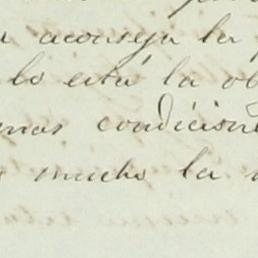 aconseja la
lo está la ob
mas condicion
mucho la